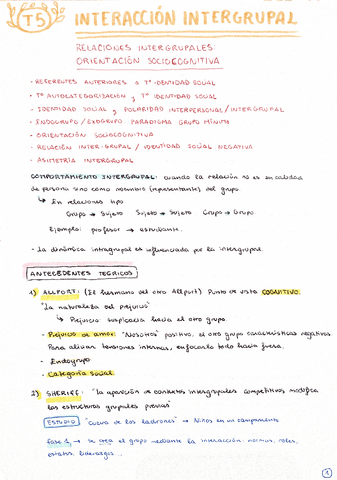 T5 INTERACCIÓN INTERGRUPAL
RELACIONES INTERGRUPALES
ORIENTACIÓN SOCIOCOGNITIVA
- REFERENTES ANTERIORES a Tª IDENTIDAD SOCIAL
- Tª AUTOCATEGORIZACIÓN y Tª IDENTIDAD SOCIAL
- IDENTIDAD SOCIAL y POLARIDAD INTERPERSONAL/INTERGRUPAL
- ENDOGRUPO/EXOGRUPO PARADIGMA GRUPO MÍNIMO
- ORIENTACIÓN SOCIOCOGNITIVA
- RELACIÓN INTER-GRUPAL / IDENTIDAD SOCIAL NEGATIVA
- ASIMETRÍA INTERGRUPAL
COMPORTAMIENTO INTERGRUPAL: cuando la relación no es en calidad
de persona sino como miembro (representante) del grupo.
↳ En relaciones tipo
Grupo → Sujeto Sujeto → Sujeto Grupo → Grupo
Ejemplo: profesor → estudiante.
- La dinámica intragrupal es influenciada por la intergrupal.
ANTECEDENTES TEÓRICOS
1) ALLPORT: (El hermano del otro Allport) Punto de vista COGNITIVO.
"La naturaleza del prejuicio"
↳ Prejuicio hacia el otro grupo.
- Prejuicio de amor: "Nosotros" positivo, el otro grupo características negativas.
Para aliviar tensiones internas, enfocarlo todo hacia fuera.
- Endogrupo
- Categoría social.
2) SHERIFF: "la aparición de contextos intergrupales competitivos modifica
las estructuras grupales previas"
ESTUDIO "Cueva de los ladrones" → Niños en un campamento
Fase 1 → Se crea el grupo mediante la interacción: normas, roles,
estatus, liderazgos...
1